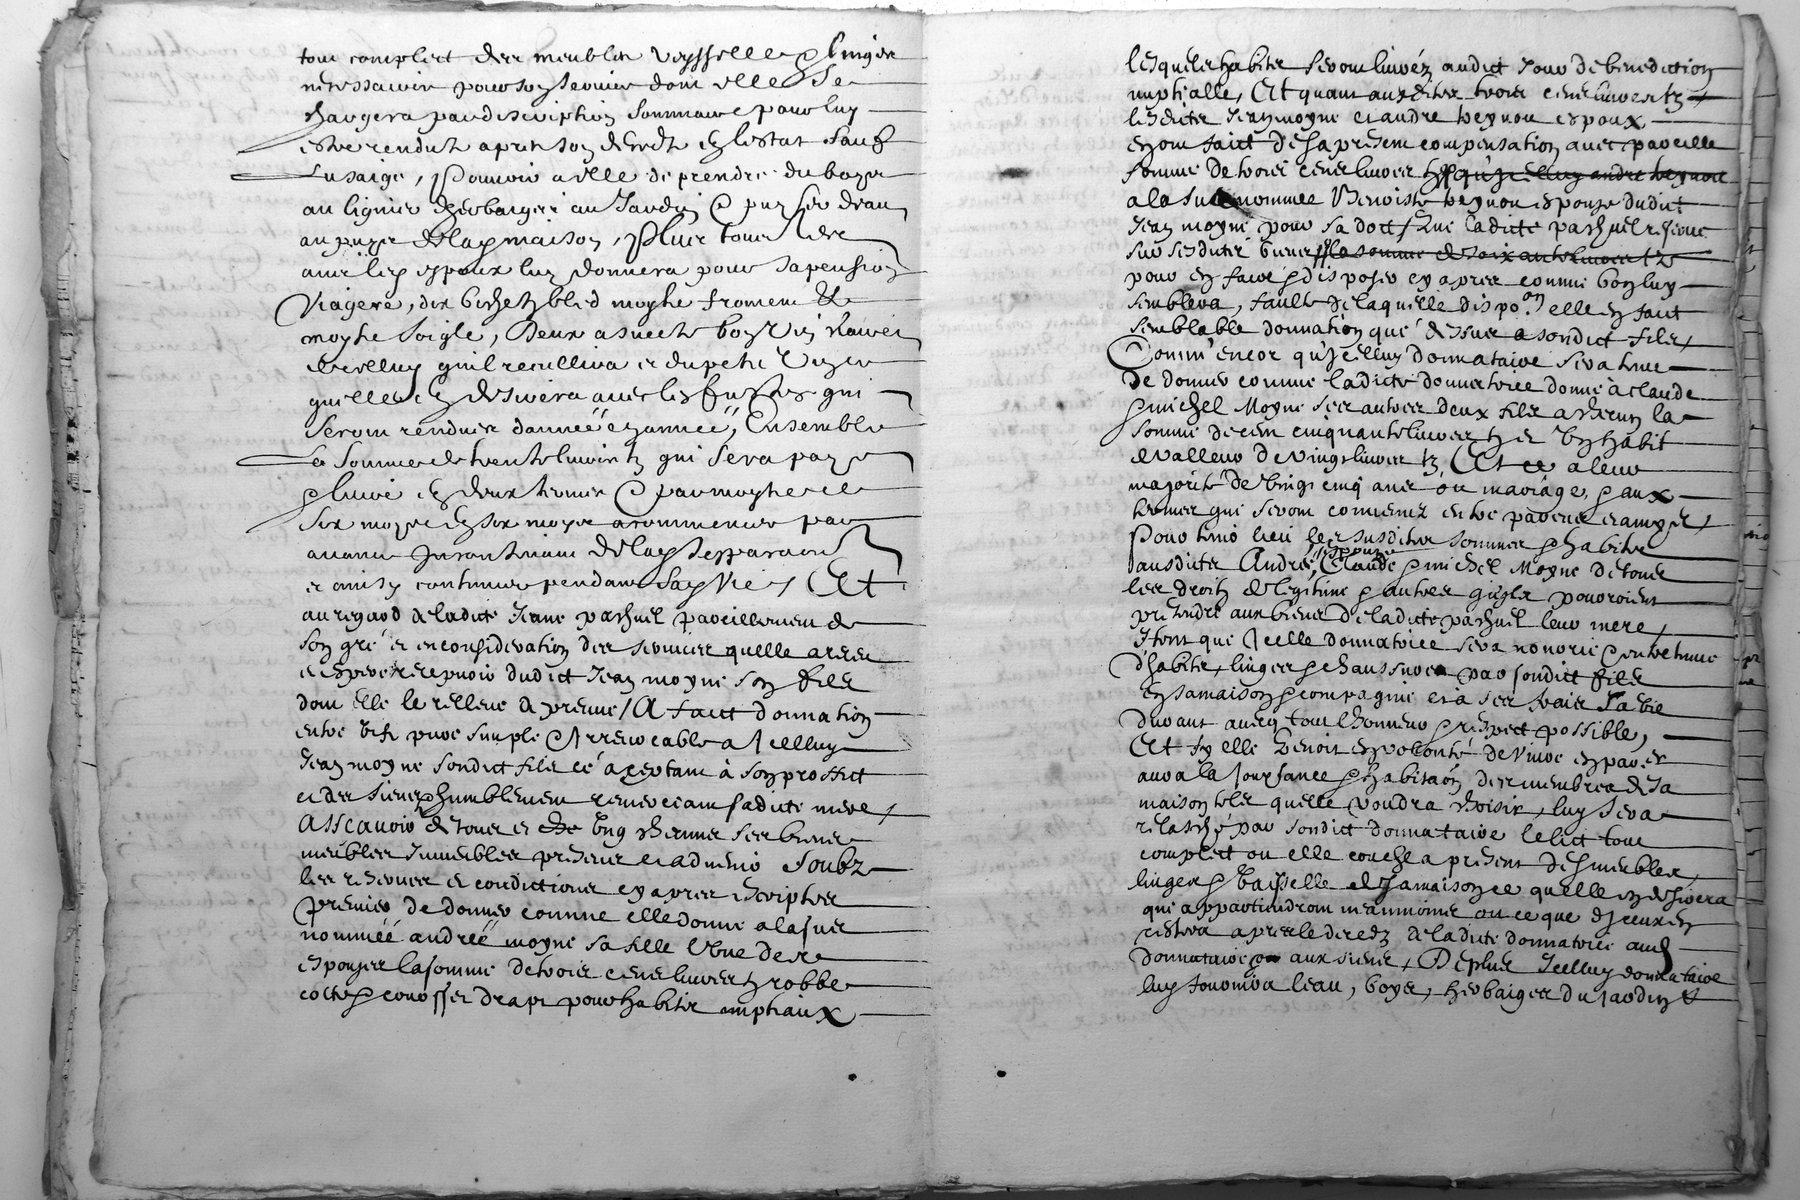 tout complect des meubles veysselle & linges
necessaires pour son service dont elle se
chargera par description sommaire pour luy
estre rendus apres son deredz en l'estat sauf
l'usaige, pouvoir a elle de prendre du boys
au lignier herbaiges au jardin & puyser d'eau
au puys de la maison, plus tous lesd
mariés espoux luy donnera pour sa pension
viagere, dix bichetz bled moytie froment &
moytie soigle, deux asnees bon vin
d'icelluy qu'il recullira et du petit vin
quelle en desirera avec les fustes qui
seront rendues d'année en année, Ensemble
la somme de trente livres tz qui sera payé
& livré en deux termes & par moytie de
six moys en six moys a commencer par
avance incontinant de la separaon
et ainsi continuer pendant sa vie, Et
au regard de ladicte Jeane paschuel pareillement de
son gré et en consideration des services quelle a receu
et espere recepvoir dudict Jean moyne son filz
dont elle le relleve de preuve, A faict donnation
entre vifz pure simple & irrevocable a icelluy
Jean moyne sondict filz ce aceptant à son proffict
et des siens & humblement remerciant sadicte mere,
Asscavoir de tous et ung chacuns ses biens
meubles immeubles presens et advenir soubz
les reserves et condictions cy apres escriptes
premier de donner comme elle donne a la sus
nommée andrée moyne sa fille une des
espouses la somme de trois cens livres tz robbe
cotte & corosset drapt pour habitz nuptiaux
lesquelz habitz seront livréz audict jour de benediction
nuptialle, Et quant ausdictes trois cens livres tz,
lesdictz Jean moyne et andre teynou espoux
en ont faict desja present compensation avec pareille
somme de trois cens livres tz qu'icelluy andre teynou
a la susnommee Benoiste teynou espouse dudict
Jean moyne pour sa dot, que ladicte paschuel reserve
sur sesdictz biens la somme de soixante livres tz
pour en faire & disposer cy apres comme bon luy
semblera, faulte de laquelle dispoon elle en faict
semblable donnation que dessus a sondict filz,
Comm' encor qu'icelluy donnataire sera tenu
de donner comme ladicte donnatrice donne à claude
& michel Moyne ses autres deux filz a chacun la
somme de cent cinquante livres tz et ung habit
de valleur de vingt livres tz, Et ce a leur
majorité de vingt cinq ans ou mariage, & aux
termes qui seront convenuz entre parens et amys,
Pour tenir lieu les susdictes sommes & habitz
ausdictz Andrée, espouse Claude & michel Moyne de tous
les droitz de legitime & autres qu'ilz pouroient
pretendre aux biens de ladicte paschuel leur mere,
Item que icelle donnatrice sera norrie & entretenue
d'habitz, linges & chaussures par sondict filz
en sa maison & compagnie et à ses frais sa vie
durant avecq tout l'honneur & respect possible,
Et sy elle venoit en volonté de vivre en part
aura la jouyssance & habitaon des membres de sa
maison telz quelle voudra choisir, luy sera
relasché par sondict donnataire le lict tout
complect ou elle couche a present des meubles,
linges & vaisselle de sa maison ce quelle en desirera
qui appartiendront neanmoins ou ce que d'iceux en
restera apres le deredz de ladicte donnatrice aud
donnataire ou aux siens, De plus icelluy donnataire
luy fournira l'eau, boys, herbaiges du jardin &